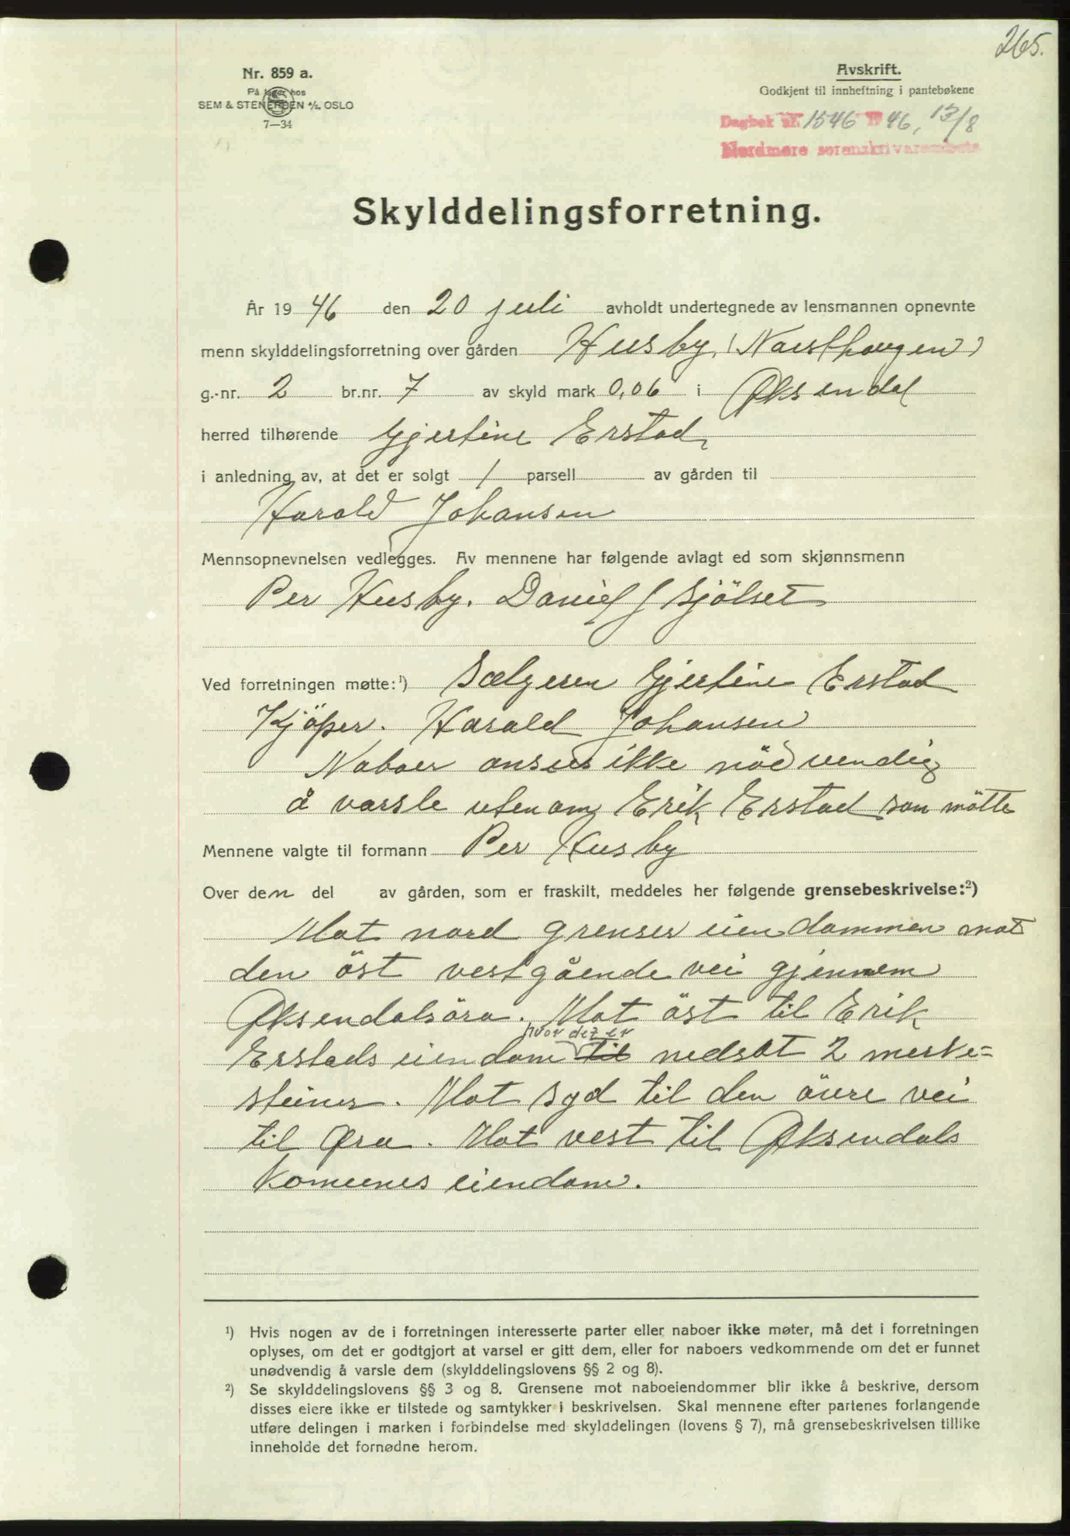 265.
Nr. 859 a.
På lager hos
SEM & STENERSEN A/S, OSLO
7—34
Avskrift.
Godkjent til innheftning i pantebøkene
Dagbok nr. 1546 1946, 13/8
Nordmøre sorenskrivarembete
Skylddelingsforretning.
År 1946 den 20 juli avholdt undertegnede av lensmannen opnevnte
menn skylddelingsforretning over gården Husby (Nausthaugen)
g.-nr. 2 br.nr. 7 av skyld mark 0,06 i Øksendal
herred tilhørende Gjertine Erstad
i anledning av, at det er solgt 1 parsell av gården til
Harald Johansen
Mennsopnevnelsen vedlegges. Av mennene har følgende avlagt ed som skjønnsmenn
Per Husby. Daniel J Sjölset
Ved forretningen møtte:¹) Sælgeren Gjertine Erstad
Kjöper. Harald Johansen
Naboer anses ikke nödvendig
å varsle utenom Erik Erstad som mötte
Mennene valgte til formann Per Husby
Over den del av gården, som er fraskilt, meddeles her følgende grensebeskrivelse:²)
Mot nord grenser eiendommen mot
den öst vestgående vei gjennem
Øksendalsöra. Mot öst til Erik
hvor det er
Erstads eiendom til nedsat 2 merke=
steiner. Mot syd til den övre vei
til Øra. Mot vest til Øksendals
Komunes eiendom.
¹) Hvis nogen av de i forretningen interesserte parter eller naboer ikke møter, må det i forretningen
oplyses, om det er godtgjort at varsel er gitt dem, eller for naboers vedkommende om det er funnet
unødvendig å varsle dem (skylddelingslovens §§ 2 og 8).
²) Se skylddelingslovens §§ 3 og 8. Grensene mot naboeiendommer blir ikke å beskrive, dersom
disses eiere ikke er tilstede og samtykker i beskrivelsen. Skal mennene efter partenes forlangende
utføre delingen i marken i forbindelse med skylddelingen (lovens § 7), må grensebeskrivelsen tillike
inneholde det fornødne herom.